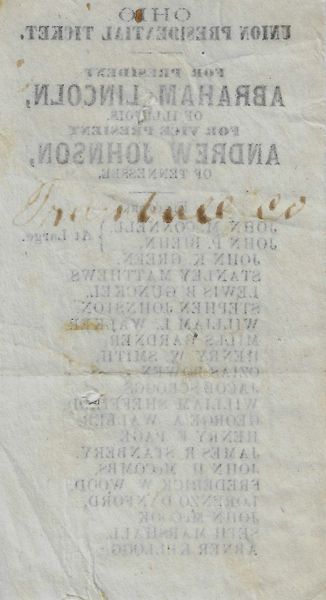 OHIO.
UNION PRESIDENTIAL TICKET.
FOR PRESIDENT
ABRAHAM LINCOLN,
OF ILLINOIS.
FOR VICE PRESIENT
ANDREW JOHNSON,
OF TENNESSEE.
Trumbull Co
JOHN M'CONNELL, } At Large.
JOHN P. BIEHN,
JOHN K. GREEN,
STANLEY MATTHEWS
LEWIS B. GUNCKEL,
STEPHEN JOHNSTON,
WILLIAM L. WALKER
MILLS GARDNER,
HENRY W. SMITH,
OZIAS BOWEN,
JACOB SCROGGS,
WILLIAM SHEFFIELD,
GEORGE A. WALLER
HENRY F. PAGE,
JAMES R. STANBERY,
JOHN H. McCOMBS,
FREDERICK W. WOOD,
LORENZO DANFORD,
JOHN McCOOK,
SETH MARSHALL,
ABNER KELLOGG,